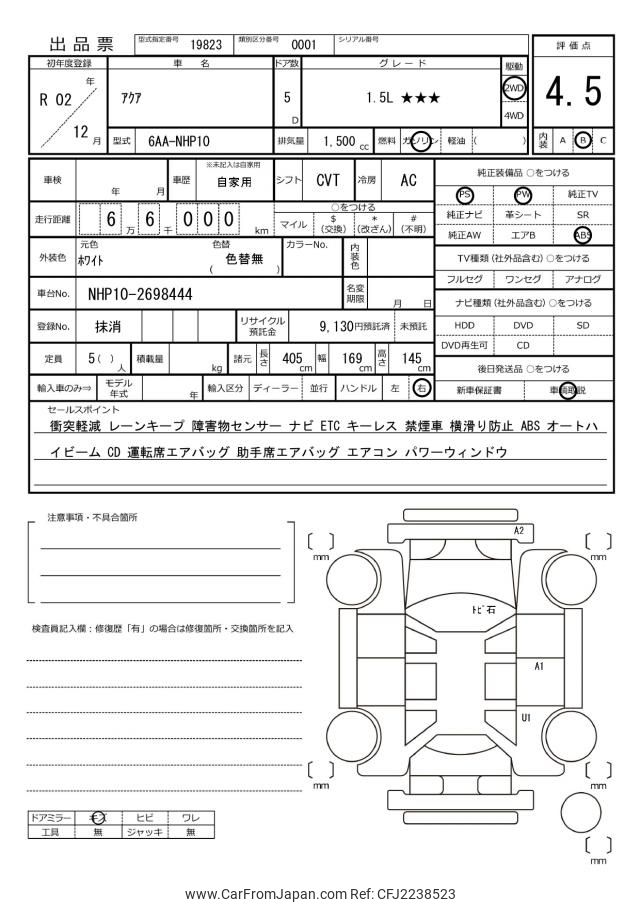 出品票 型式指定番号 19823 類別区分番号 0001 シリアル番号
評価点
4.5
内装 A B C
初年度登録 車名 ドア数 グレード 駆動
R 02 年 12 月
アクア 5 D 1.5L ★★★ 2WD 4WD
型式 6AA-NHP10 排気量 1,500 cc 燃料 ガソリン 軽油 ( )
車検 年 月 車歴 ※未記入は自家用 自家用 シフト CVT 冷房 AC
走行距離 6 6 万 千 0 0 0 km
○をつける
マイル $ (交換) * (改ざん) # (不明)
外装色 元色 ホワイト 色替 ( 色替無 ) カラーNo. 内装色
車台No. NHP10-2698444 名変期限 月 日
登録No. 抹消 リサイクル預託金 9,130円預託済 未預託
定員 5 ( ) 人 積載量 kg 諸元 長さ 405 cm 幅 169 cm 高さ 145 cm
輸入車のみ⇒ モデル年式 年 輸入区分 ディーラー 並行 ハンドル 左 右
純正装備品 ○をつける
PS PW 純正TV
純正ナビ 革シート SR
純正AW エアB ABS
TV種類(社外品含む) ○をつける
フルセグ ワンセグ アナログ
ナビ種類(社外品含む) ○をつける
HDD DVD SD
DVD再生可 CD
後日発送品 ○をつける
新車保証書 車輌取説
セールスポイント
衝突軽減 レーンキープ 障害物センサー ナビ ETC キーレス 禁煙車 横滑り防止 ABS オートハ
イビーム CD 運転席エアバッグ 助手席エアバッグ エアコン パワーウィンドウ
注意事項・不具合箇所
検査員記入欄：修復歴「有」の場合は修復箇所・交換箇所を記入
A2
〔 〕 mm 〔 〕 mm
トビ石
A1
U1
〔 〕 mm 〔 〕 mm
〔 〕 mm
ドアミラー キズ ヒビ ワレ
工具 無 ジャッキ 無
www.CarFromJapan.com Ref: CFJ2238523